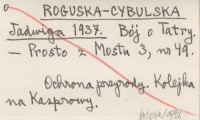 ROGUSKA-CYBULSKA
Jadwiga 1937. Bój o Tatry.
— Prosto z Mostu 3, nr 49.
Ochrona przyrody. Kolejka
na Kasprowy.